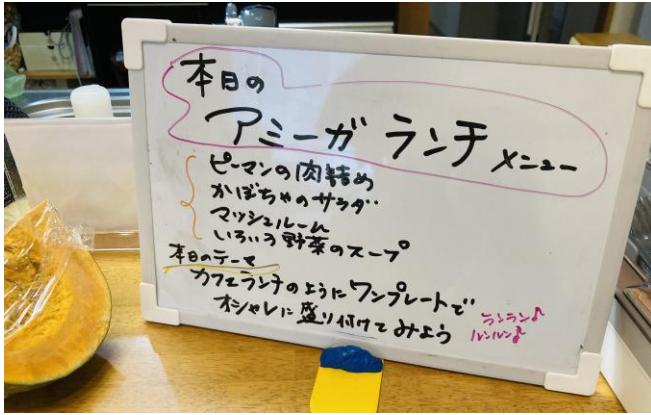 本日の
アミーガ ランチ メニュー
ピーマンの肉詰め
かぼちゃのサラダ
マッシュルーム
いろいろ野菜のスープ
本日のテーマ
カフェランチのようにワンプレートで
オシャレに盛り付けてみよう
ランラン♪
ルンルン♪